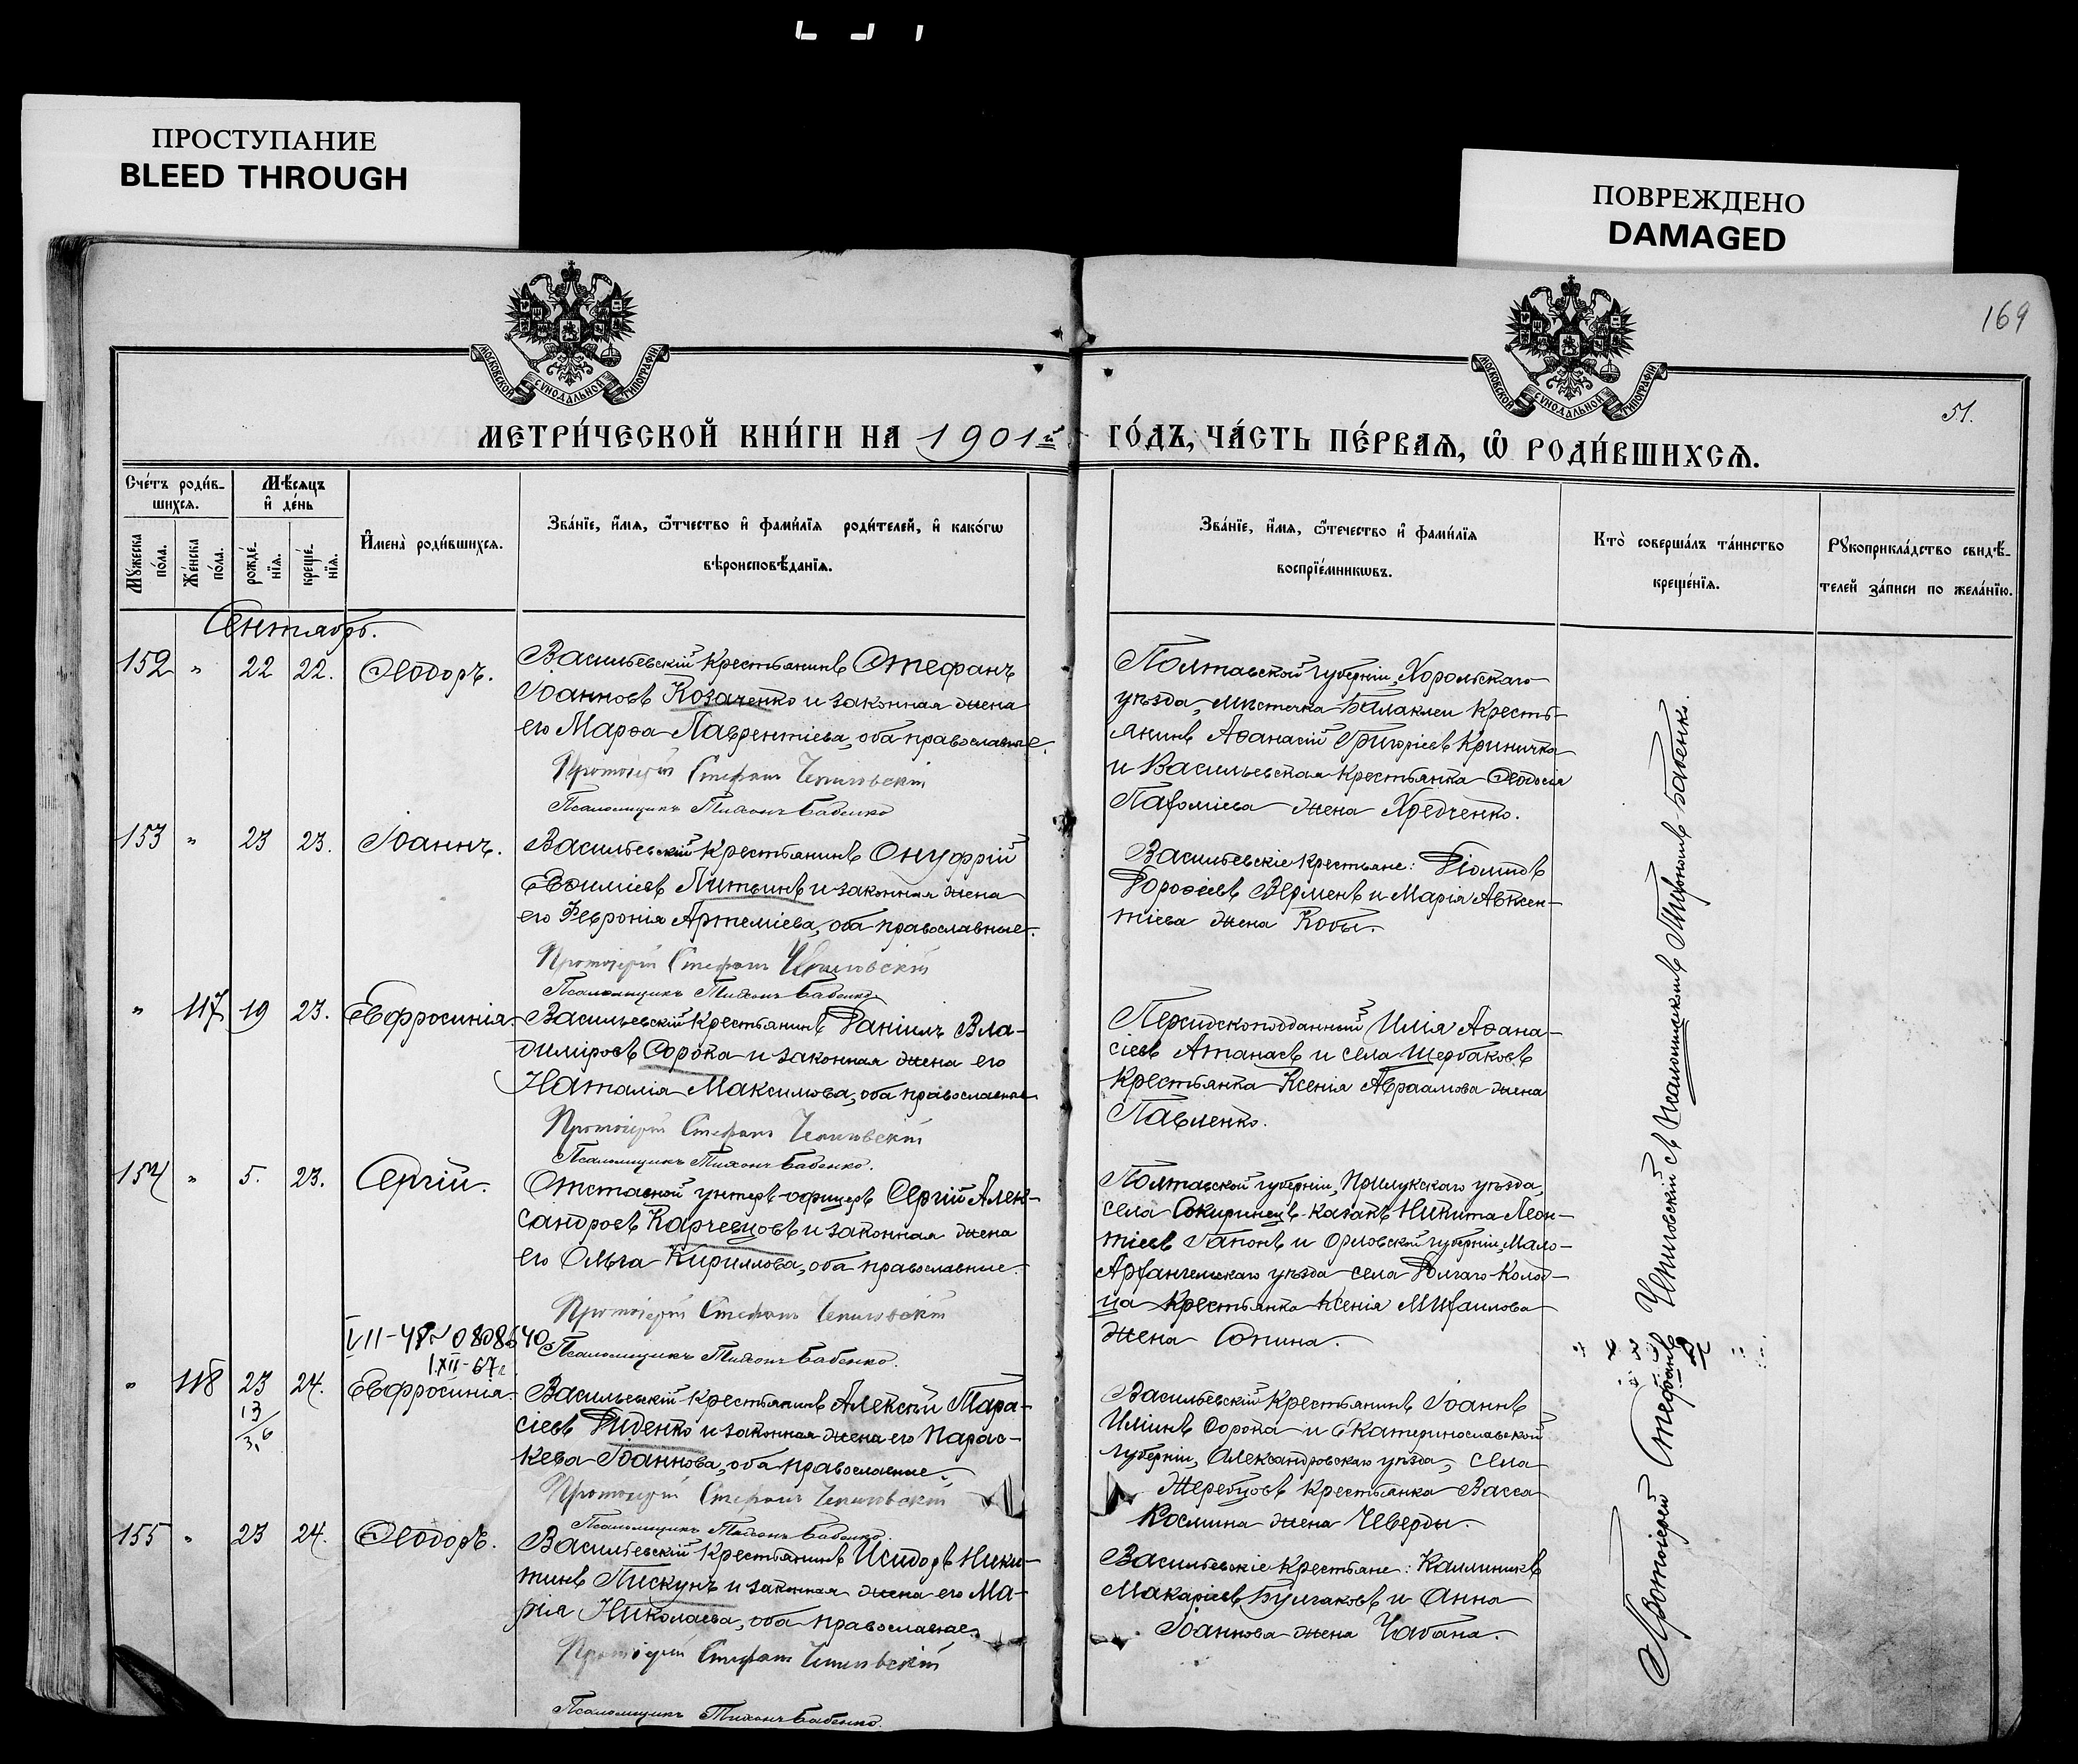 ПРОСТУПАНИЕ
BLEED THROUGH
ПОВРЕЖДЕНО
DAMAGED
169
МОСКОВСКОЙ СѴНОДАЛЬНОЙ ТИПОГРАФІИ
МОСКОВСКОЙ СѴНОДАЛЬНОЙ ТИПОГРАФІИ
51.
МЕТРИ́ЧЕСКОЙ КНИ́ГИ НА 1901й ГО́ДЪ, ЧА́СТЬ ПЕ́РВАѦ, Ѡ҆ РОДИ́ВШИХСѦ.
Сче́тъ роди́в-
шихсѧ.
Мѣ́сѧцъ
и҆ де́нь
Мꙋ́жеска
по́ла.
Же́нска
по́ла.
рожде́-
нїѧ.
креще́-
нїѧ.
И҆мена̀ роди́вшихсѧ.
Зва́нїе, и҆́мѧ, ѻ҆́тчество и҆ фами́лїѧ роди́телей, и҆ како́гѡ
вѣроисповѣ́данїѧ.
Зва́нїе, и҆́мѧ, ѻ҆те́чество и҆ фами́лїѧ
воспрїе́мникѡвъ.
Кто̀ соверша́лъ та́инство
креще́нїѧ.
Рꙋкоприкла́дство свидѣ́-
телей за́писи по жела́нїю.
Сентябрь.
152 " 22 22. Ѳеодоръ.
Васильевскій крестьянинъ Стефанъ
Іоанновъ Козаченко и законная жена
его Марѳа Лаврентіева, оба православные.
Протоіерей Стефанъ Чернявскій
Псаломщикъ Тихонъ Бабенко
Полтавской губерніи, Хорольскаго
уѣзда, мѣстечка Балаклеи кресть-
янинъ Аѳанасій Григоріевъ Криничка
и Васильевская крестьянка Ѳеодосія
Пахоміева жена Хредченко.
153 " 23 23. Іоаннъ.
Васильевскій крестьянинъ Онуфрій
Евѳиміевъ Литвинъ и законная жена
его Февронія Артеміева, оба православные.
Протоіерей Стефанъ
Псаломщикъ Тихонъ Бабенко
Васильевскіе крестьяне: Діомидъ
Дороѳеевъ Верменъ и Марія Авксен-
тіева жена Кобы.
" 117 19 23. Евфросинія.
Васильевскій крестьянинъ Даніилъ Вла-
диміровъ Сорока и законная жена его
Наталія Максимова, оба православные
Протоіерей Стефанъ
Псаломщикъ Тихонъ Бабенко.
Персидскоподданный Илія Аѳана-
сіевъ Атанаевъ и села Щербаковъ
крестьянка Ксенія Авраамова жена
Павленко.
154 " 5. 23. Сергій.
Отставной унтеръ-офицеръ Сергій Алек-
сандровъ Карчевцовъ и законная жена
его Ольга Кириллова, оба православные.
Протоіерей Стефанъ
Псаломщикъ Тихонъ Бабенко.
Полтавской губерніи, Прилукскаго уѣзда,
села Сокиринецъ казакъ Никита Леон-
тіевъ Гапонъ и Орловской губерніи, Мало-
Архангельскаго уѣзда села Долгаго Колод-
ца крестьянка Ксенія Михаилова
жена Сопина.
" 118 23 24. Евфросинія.
Васильевскій крестьянинъ Алексѣй Тара-
сіевъ Диденко и законная жена его Парас-
кева Іоаннова, оба православные.
Протоіерей Стефанъ
Псаломщикъ Тихонъ Бабенко.
Васильевскій крестьянинъ Іоаннъ
Иліинъ Сорока и Екатеринославской
губерніи, Александровскаго уѣзда, села
Жеребцовъ крестьянка Васса
Космина жена Чеверды.
155 " 23 24. Ѳеодоръ.
Васильевскій крестьянинъ Исидоръ Ники-
тинъ Пискунъ и законная жена его Ма-
рія Николаева, оба православные.
Протоіерей Стефанъ
Псаломщикъ Тихонъ Бабенко.
Васильевскіе крестьяне: Каллиникъ
Макаріевъ Булгаковъ и Анна
Іоаннова жена Чабана.
Протоіерей Стефанъ съ псаломщикомъ Тихономъ Бабенко.